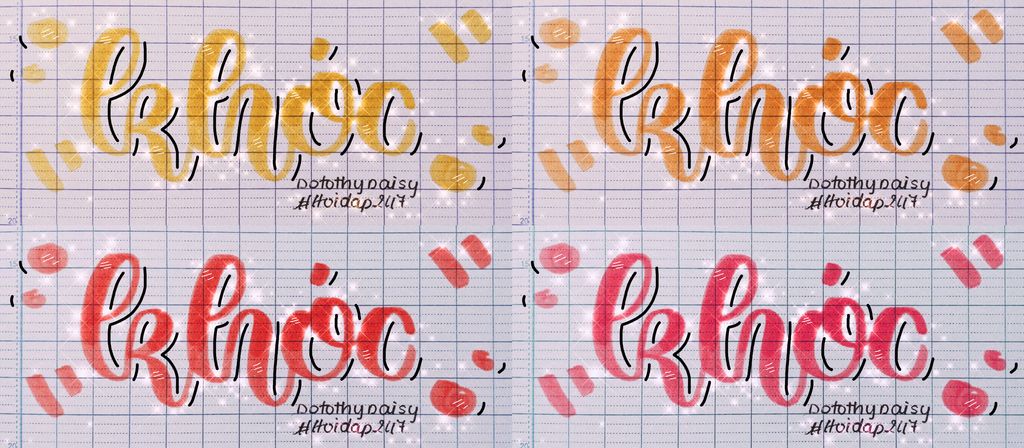 khóc
DotothyDaisy
#Hoidap_247
khóc
DotothyDaisy
#Hoidap_247
khóc
DotothyDaisy
#Hoidap_247
khóc
DotothyDaisy
#Hoidap_247